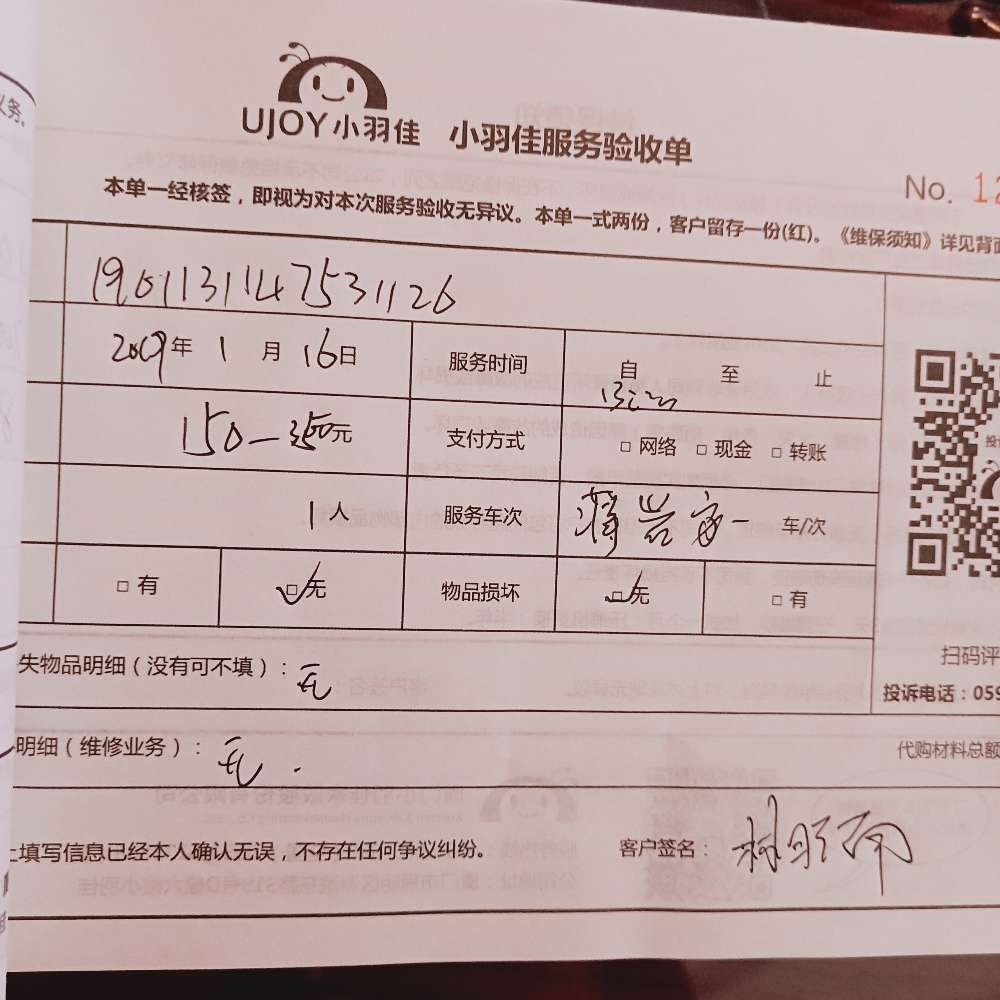 务。
UJOY小羽佳 小羽佳服务验收单
No. 12
本单一经核签，即视为对本次服务验收无异议。本单一式两份，客户留存一份(红)。《维保须知》详见背面
1901131147531126
2019年 1 月 16日 服务时间 自 至 止
150—350元 支付方式 □ 网络 □ 现金 □ 转账
1人 服务车次 车/次
□ 有 □无 物品损坏 □无 □ 有
扫码评
失物品明细（没有可不填）：无
投诉电话：059
明细（维修业务）：无.
代购材料总额
上填写信息已经本人确认无误，不存在任何争议纠纷。 客户签名：